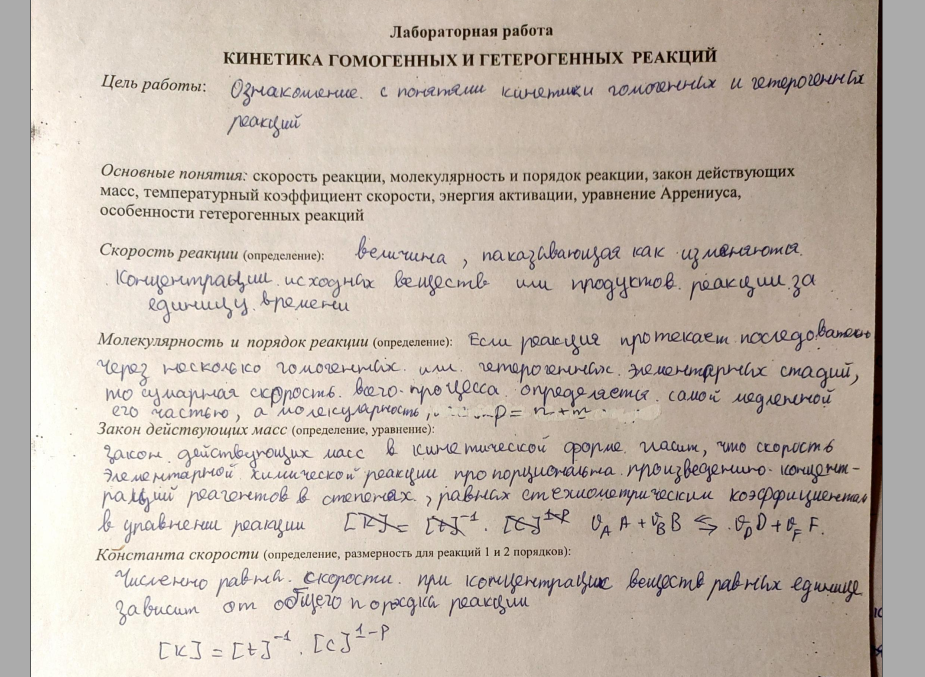 Лабораторная работа
КИНЕТИКА ГОМОГЕННЫХ И ГЕТЕРОГЕННЫХ РЕАКЦИЙ
Цель работы: Ознакомление с понятями кинетики гомогенных и гетерогенных
реакций
Основные понятия: скорость реакции, молекулярность и порядок реакции, закон действующих
масс, температурный коэффициент скорости, энергия активации, уравнение Аррениуса,
особенности гетерогенных реакций
Скорость реакции (определение): величина, паказывающая как изменяются
концентрации исходных веществ или продуктов реакции за
единицу времени
Молекулярность и порядок реакции (определение): Если реакция протекает последовательно
через несколько гомогенных или гетерогенных элементарных стадий,
то сумарная скорость всего процесса определяеты самой медленной
его частью, а молекулярность, P = n + m
Закон действующих масс (определение, уравнение):
Закон действующих масс в кинетической форме гласит, что скорость
элементарной химической реакции пропорциональна произведению концент-
раций реагентов в степенях, равных стехиометрическим коэффициентам
в уравнении реакции [K] = [t]⁻¹ · [C]¹⁻ᴾ υ_A A + υ_B B ⇆ υ_D D + υ_F F.
Константа скорости (определение, размерность для реакций 1 и 2 порядков):
Численно равна скорости при концентрациях веществ равных единице
зависит от общего порядка реакции
[K] = [t]⁻¹ · [C]¹⁻ᴾ